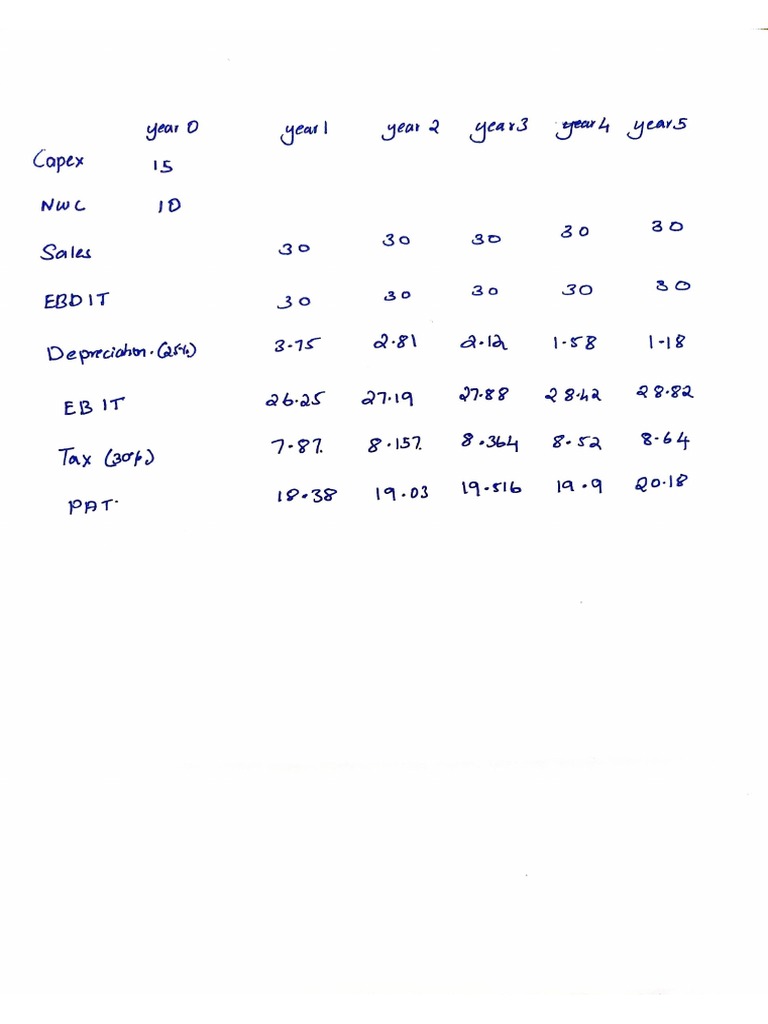 year 0 year 1 year 2 year 3 year 4 year 5
Capex 15
NWC 10
Sales 30 30 30 30 30
EBDIT 30 30 30 30 30
Depreciation. (25%) 3.75 2.81 2.12 1.58 1.18
EBIT 26.25 27.19 27.88 28.42 28.82
Tax (30%) 7.87. 8.157. 8.364 8.52 8.64
PAT. 18.38 19.03 19.516 19.9 20.18